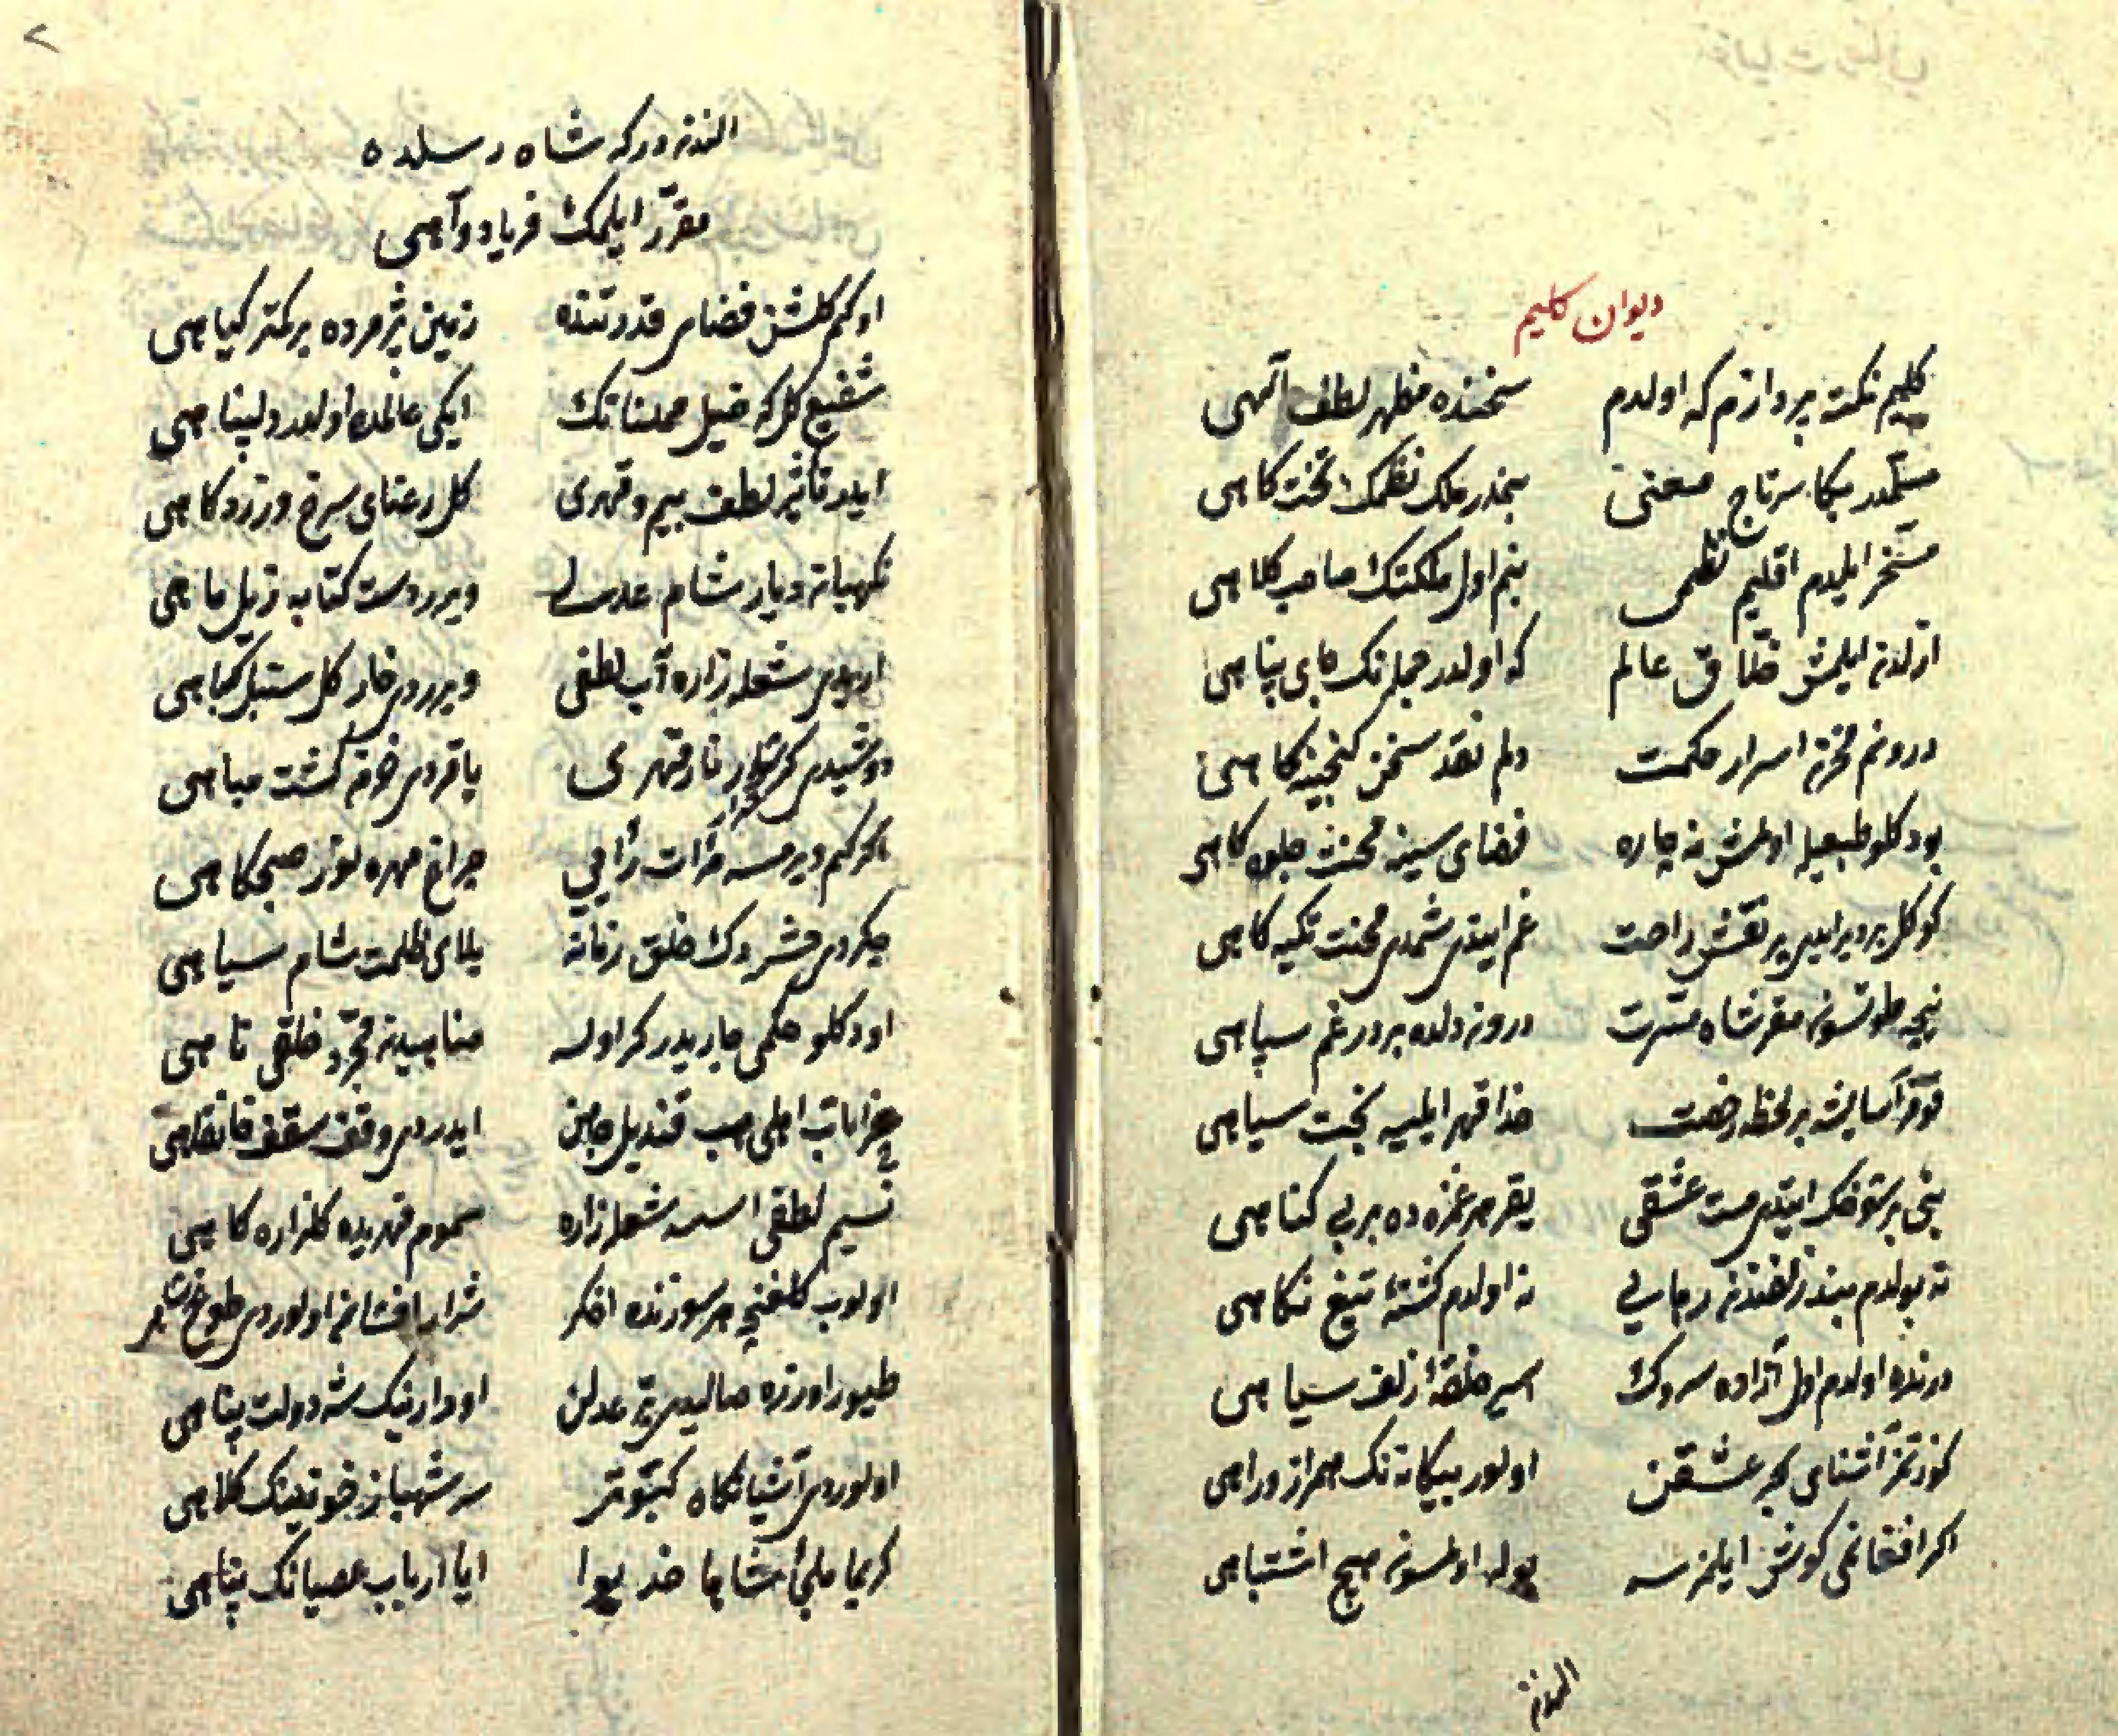 دیوان کلیم
کلیم نکته پردازم که اولدم سخنده مظهر لطف الهی
مسلمدر بکا سرتاج معنی بنمدر ملک نظمک تختکاهی
مسخر ایلدم اقلیم نظمی بنم اول مملکتک صاحب کلاهی
ازلدن ایلمش خلاق عالم که اولدر جمله نک جای پناهی
درونم مخزن اسرار حکمت دلم نقد سخن گنجینه کاهی
بودکلو طبعیله اولمش نه چاره فضای سینه محنت جلوه کاهی
کوکل بردیر ایدی پر نقش راحت غم ایتدی شمدی محنت تکیه کاهی
نیجه طوتسون مقر شاه مسرت درون دلده بردر غم سپاهی
قومز آسایشه بر لحظه رخصت خدا قهر ایلیه بخت سیاهی
بنی بر شوخک ایتدی مست عشقی یقر هر غمزه ده بر بی کناهی
نه بولدم بند زلفندن رهایی نه اولدم کشتهٔ تیغ نکاهی
اولدم اول آزاده سروک اسیر حلقهٔ زلف سیاهی
آشنای بحر عشقن اولور بیکانه نک همراز و راهی
اکر افغانمی کوش ایلمزسه بوله اولمسون هیچ اشتباهی
الندن
الندن درکه شاه رسلده
مقرر ایلمک فریاد و آهی
اوکم کلشن فضای قدرتنده زمین پژمرده بر کمتر کیاهی
شفیع کل که خیل ممکناتک ایکی عالمده اولدر دلپناهی
ایدر تأثیر لطف بیم و قهری کل رعنای سرخ و زرد کاهی
نکهبان دیار شام عدلی ویرر دست کتانه ذیل ماهی
شعله زاره آب لطفی ویرردی خار کل سنبل کیاهی
نار قهری یاقردی خرمن کشت مباهی
اکر کم ویرمسه مرآت رأیی چراغ مهره نور صبحکاهی
چکردی حشره دک خلق زمانه بلای ظلمت شام سیاهی
اودکلو حکمی جاریدر کر اولسه مناهیدن مجرد خلقی ناهی
خرابات اهلی هب قندیل جامن ایدردی وقف سقف خانقاهی
نسیم لطفی اسسه شعله زاره سموم قهریده کلزاره کاهی
اولوب کلغنچه هر سوزنده اخکر شرار افشان اولوردی
طیور اوزره صالیدی عدلن او دارنیک شه دولت پناهی
اولوردی آشیانکاه کبوتر سر شهباز خونینک کلاهی
کریما ملجأ شاها خدیوا ایا ارباب عصیانک پناهی